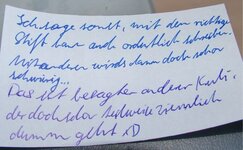 Ich sage sonst, mit dem richtigen
Stift kann auch ordentlich schreiben.
Mit anderen wirds dann doch schon
schwierig...
Das ist besagter anderer Kuli,
der doch sehr teilweise ziemlich
dumm geht XD